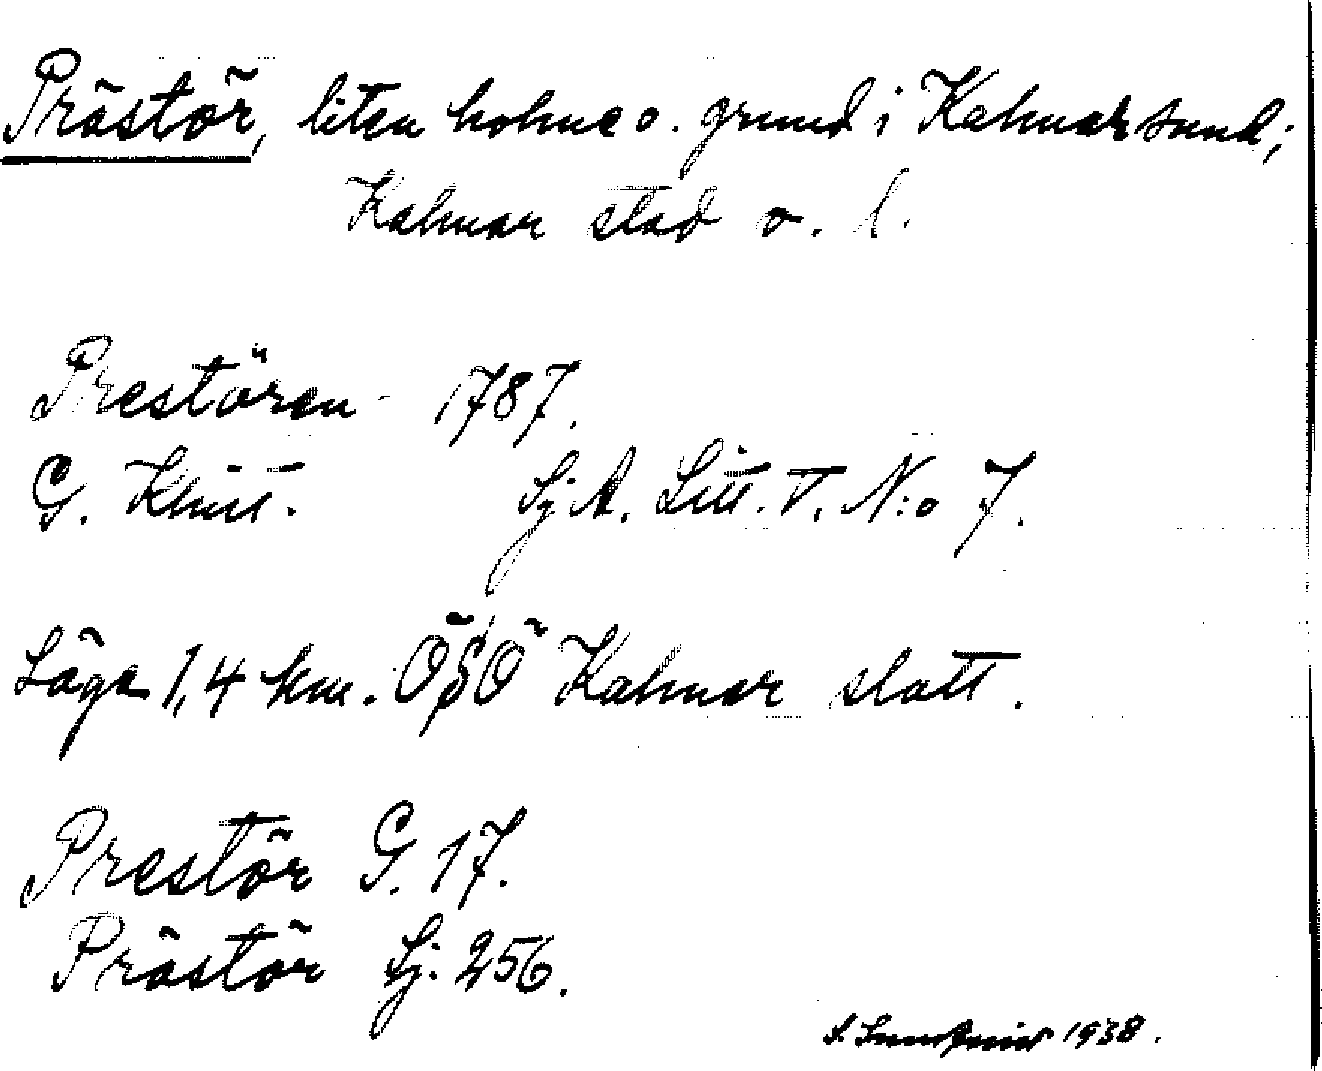 Prästör, liten holme o. grund i Kalmarsund;
Kalmar stad o. l.
Prestören 1787.
G. Klint. Sj. A. Litt. V. N:o 7.
Läge 1,4 km. ÖSÖ Kalmar slott.
Prestör G. 17.
Prästör Sj. 256.
S. 1938.